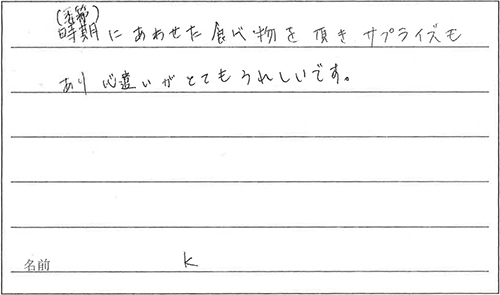 (季節)
時期にあわせた食べ物を頂きサプライズも
あり心遣いがとてもうれしいです。
名前 K